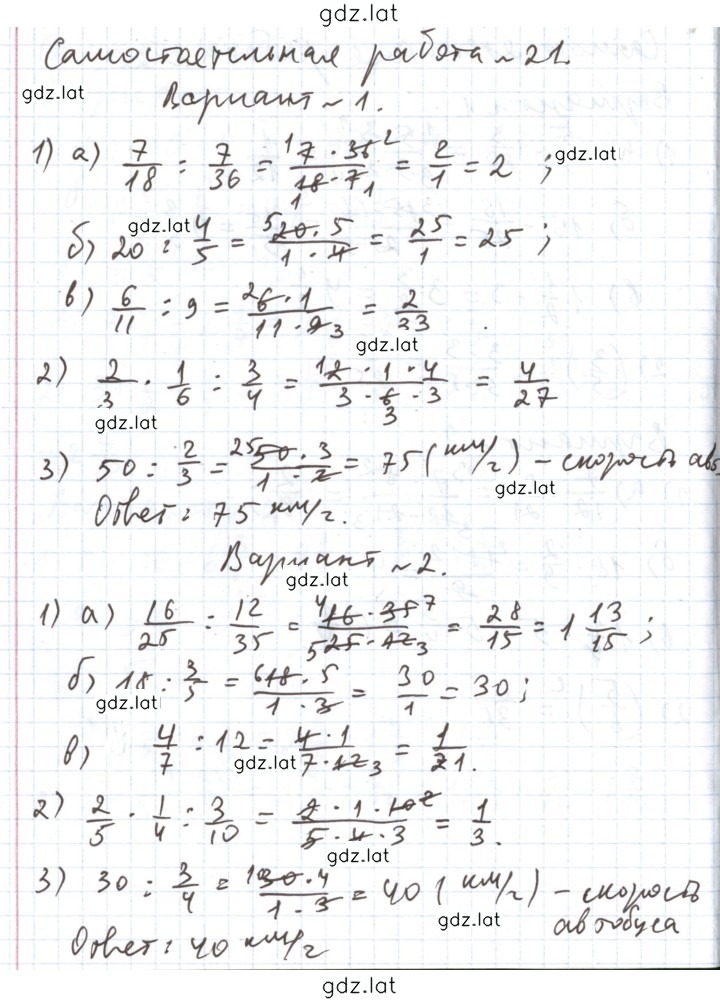 gdz.lat
Самостоятельная работа ~ 21.
gdz.lat
Вариант ~ 1.
1) а) 7/18 : 7/36 = 7 · 36 2/18 · 7 1 = 2/1 = 2 ; gdz.lat
gdz.lat
б) 20 : 4/5 = 5 20 · 5/1 · 4 = 25/1 = 25 ;
в) 6/11 : 9 = 2 6 · 1/11 · 9 3 = 2/33
gdz.lat
2) 2/3 · 1/6 : 3/4 = 1 2 · 1 · 4/3 · 6 3 · 3 = 4/27
gdz.lat
3) 50 : 2/3 = 25 50 · 3/1 · 2 = 75 (км/г) – скорость авт.
gdz.lat
Ответ : 75 км/г.
Вариант ~ 2.
gdz.lat
1) а) 16/25 : 12/35 = 4 16 · 35 7/5 25 · 12 3 = 28/15 = 1 13/15 ;
б) 18 : 3/5 = 6 18 · 5/1 · 3 = 30/1 = 30 ;
gdz.lat
в) 4/7 : 12 = 4 · 1/7 · 12 3 = 1/21.
gdz.lat
2) 2/5 · 1/4 : 3/10 = 2 · 1 · 10 2/5 · 4 · 3 = 1/3.
gdz.lat
3) 30 : 3/4 = 10 30 · 4/1 · 3 = 40 (км/г) – скорость
автобуса
gdz.lat
Ответ : 40 км/г
gdz.lat